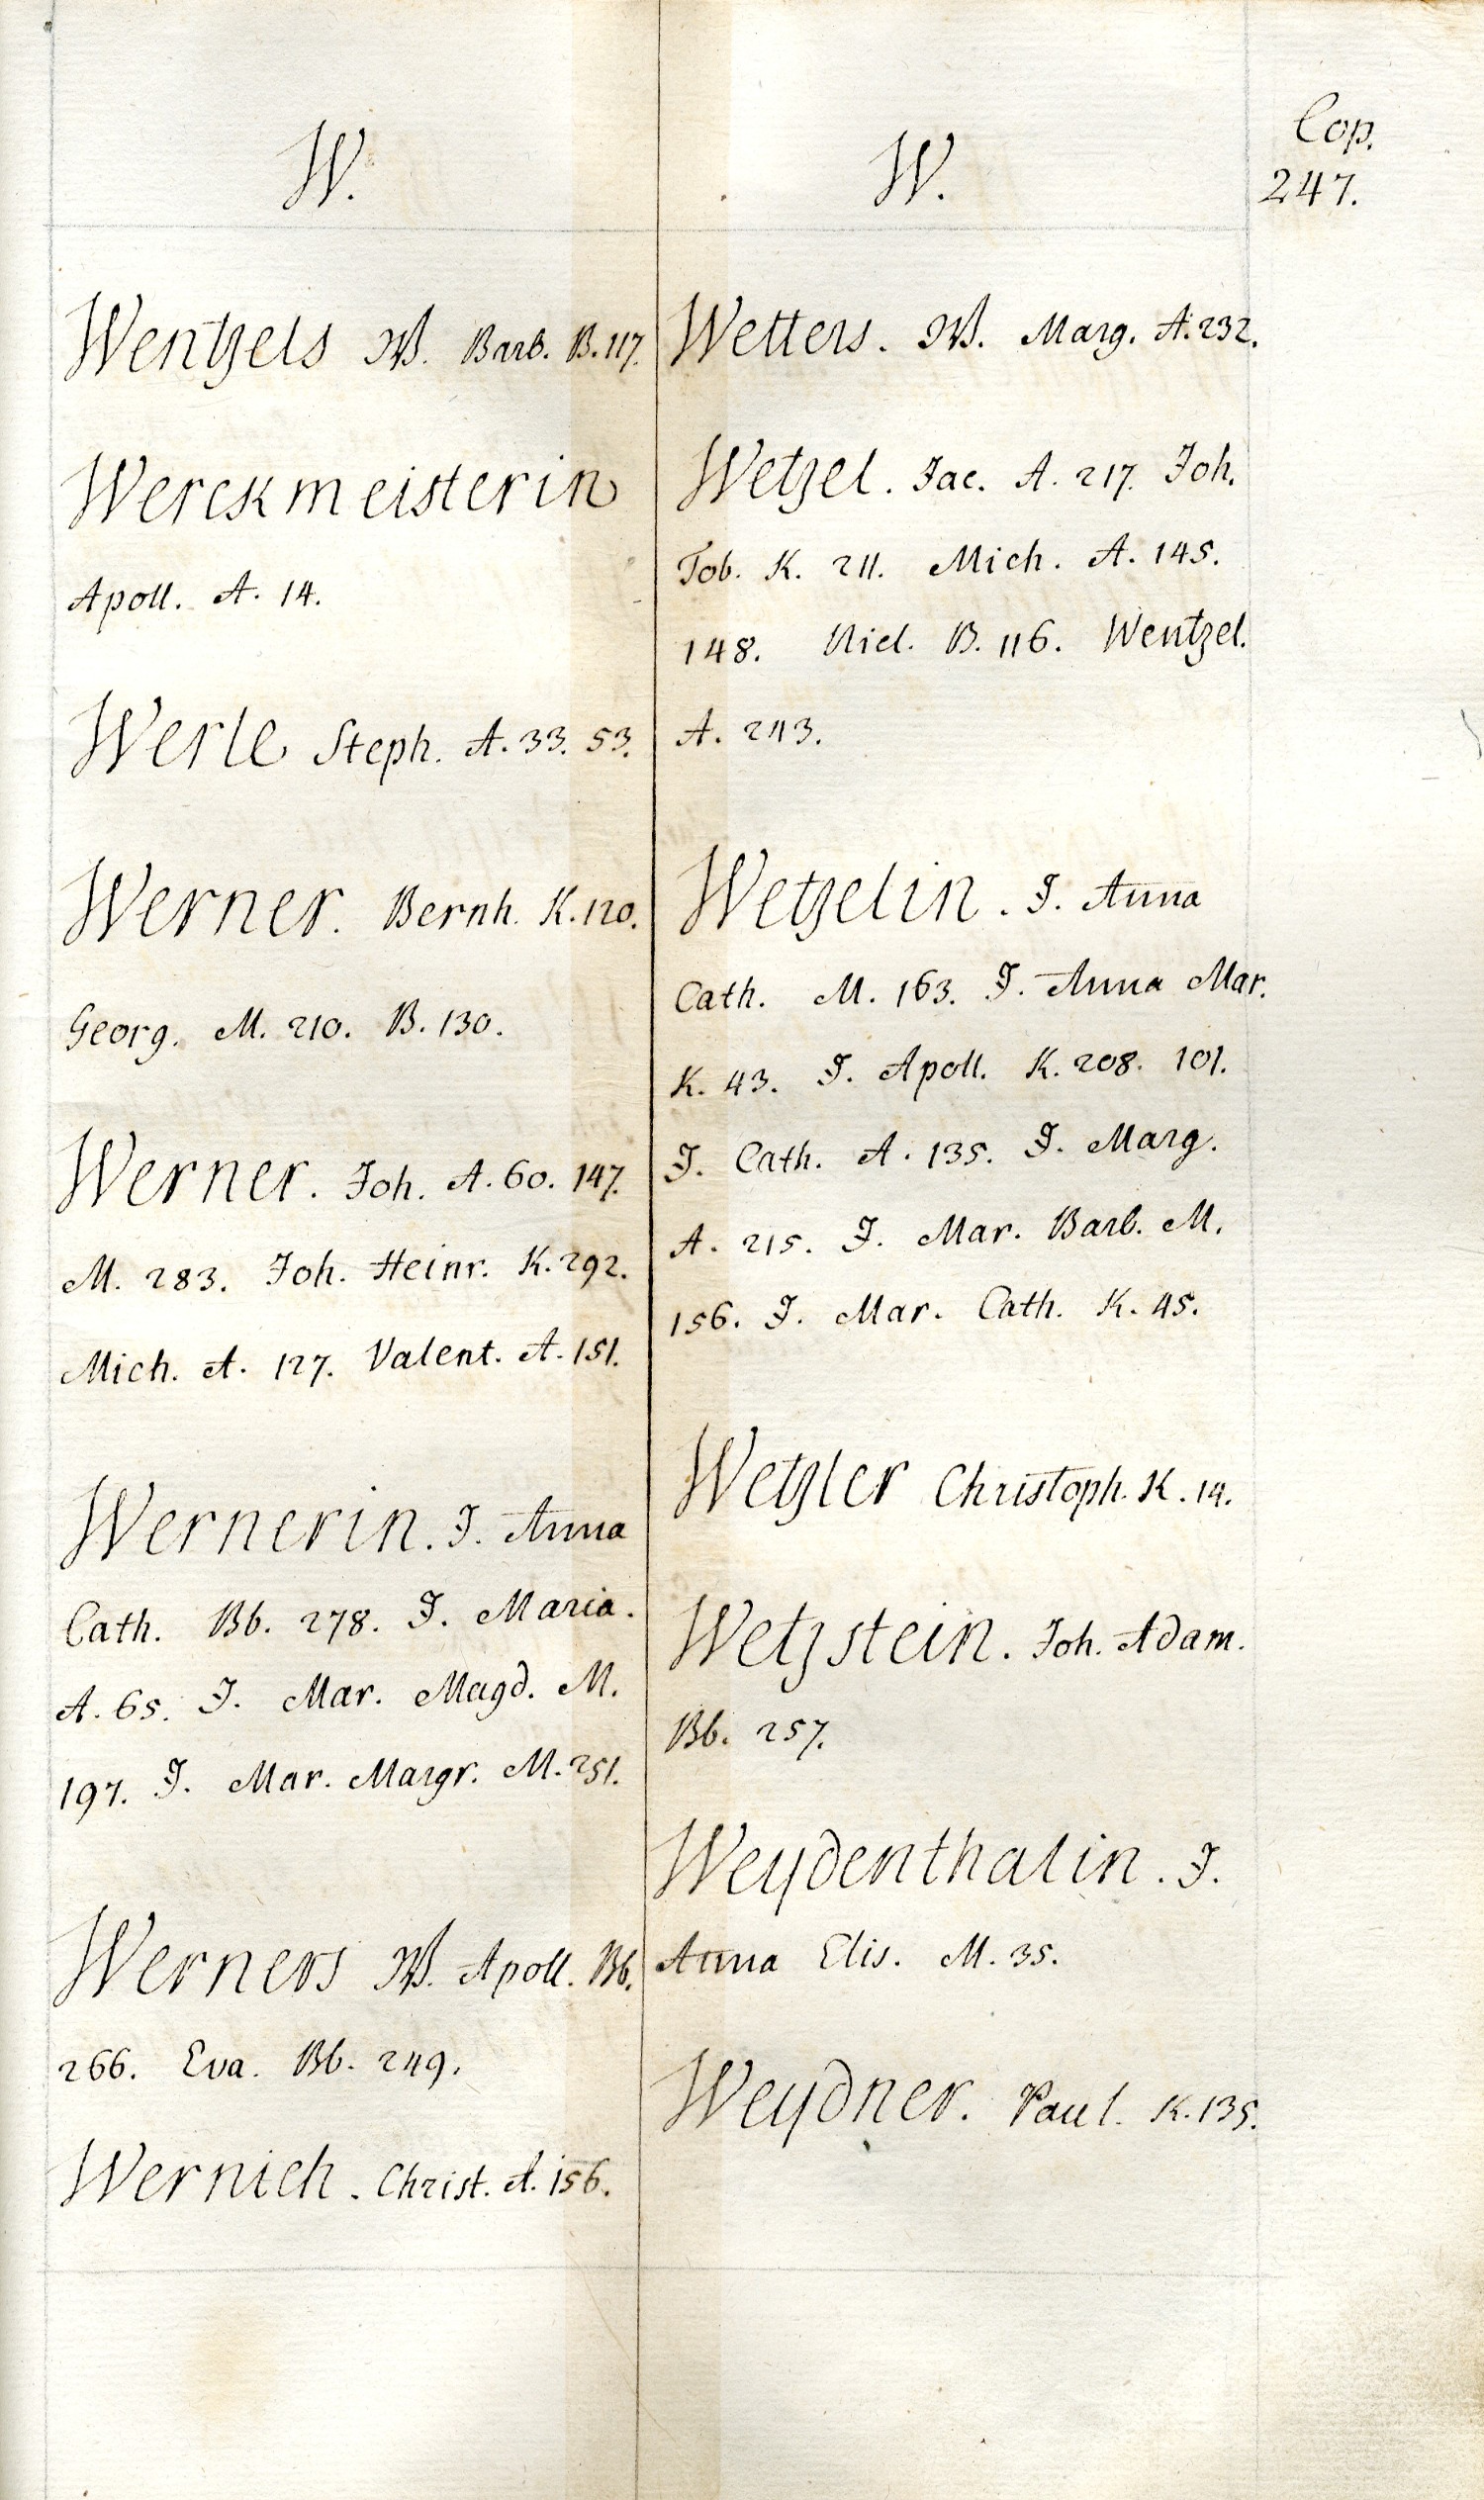 Cop.
247.
W.
Wentzels W. Barb. B. 117.
Werckmeisterin
Apoll. A. 14.
Werle Steph. A. 33. 53.
Werner. Bernh. K. 120.
Georg. M. 210. B. 130.
Werner. Joh. A. 60. 147.
M. 283. Joh. Heinr. K. 292.
Mich. A. 127. Valent. A. 151.
Wernerin. J. Anna
Cath. Bb. 278. J. Maria.
A. 65. J. Mar. Magd. M.
197. J. Mar. Margr. M. 251.
Werners W. Apoll. Bb.
266. Eva. Bb. 249.
Wernich. Christ. A. 156.
W.
Wetters. W. Marg. A. 232.
Wetzel. Jac. A. 217. Joh.
Tob. K. 211. Mich. A. 145.
148. Nicl. B. 116. Wentzel.
A. 243.
Wetzelin. J. Anna
Cath. M. 163. J. Anna Mar.
K. 43. J. Apoll. K. 208. 101.
J. Cath. A. 135. J. Marg.
A. 215. J. Mar. Barb. M.
156. J. Mar. Cath. K. 45.
Wetzler Christoph. K. 14.
Wetzstein. Joh. Adam.
Bb. 257.
Weydenthalin. J.
Anna Elis. M. 35.
Weydner. Paul. K. 135.